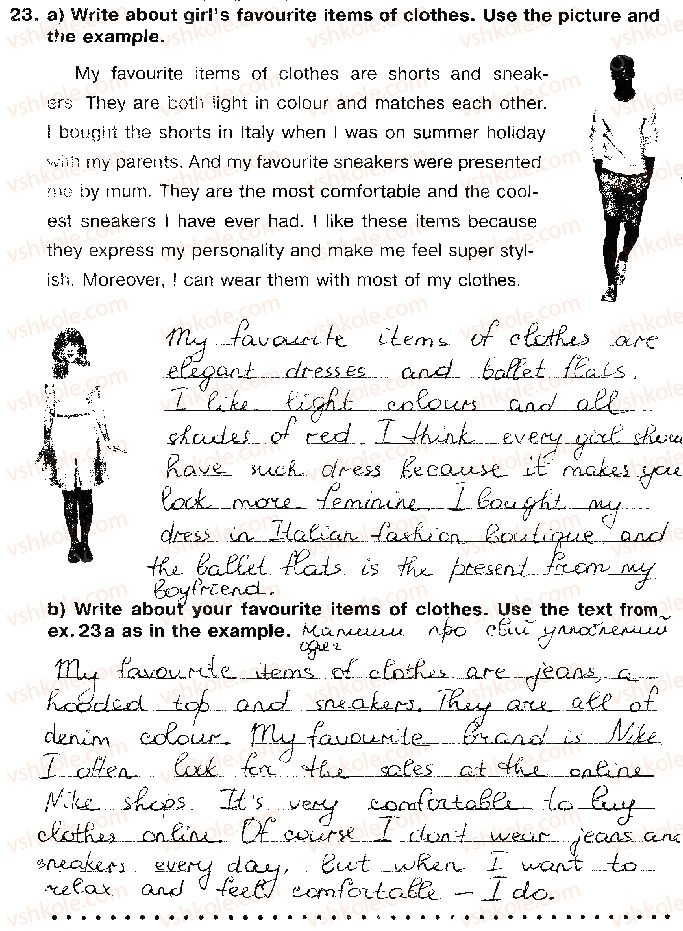 23. a) Write about girl's favourite items of clothes. Use the picture and
the example.
My favourite items of clothes are shorts and sneak-
ers. They are both light in colour and matches each other.
I bought the shorts in Italy when I was on summer holiday
with my parents. And my favourite sneakers were presented
me by mum. They are the most comfortable and the cool-
est sneakers I have ever had. I like these items because
they express my personality and make me feel super styl-
ish. Moreover, I can wear them with most of my clothes.
My favourite items of clothes are
elegant dresses and ballet flats.
I like light colours and all
shades of red. I think every girl shou
have such dress because it makes you
look more feminine. I bought my
dress in Italian fashion boutique and
the ballet flats is the present from my
boyfriend.
b) Write about your favourite items of clothes. Use the text from
ex. 23a as in the example. про свій улюблений
одяг
My favourite items of clothes are jeans, a
hooded top and sneakers. They are all of
denim colour. My favourite brand is Nike
I often look for the sales at the online
Nike shops. It's very comfortable to buy
clothes online. Of course I don't wear jeans and
sneakers every day, but when I want to
relax and feel comfortable – I do.
vshkole.com